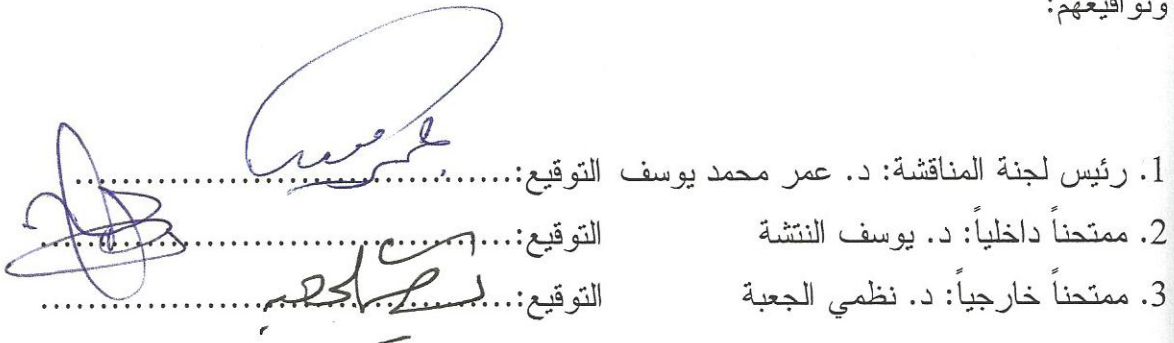 وتواقيعهم:
1. رئيس لجنة المناقشة: د. عمر محمد يوسف التوقيع:..................................
2. ممتحناً داخلياً: د. يوسف النتشة التوقيع:..................................
3. ممتحناً خارجياً: د. نظمي الجعبة التوقيع:..................................